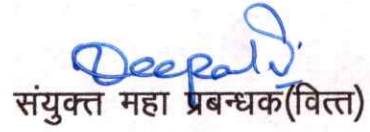 Deepali
संयुक्त महा प्रबन्धक(वित्त)